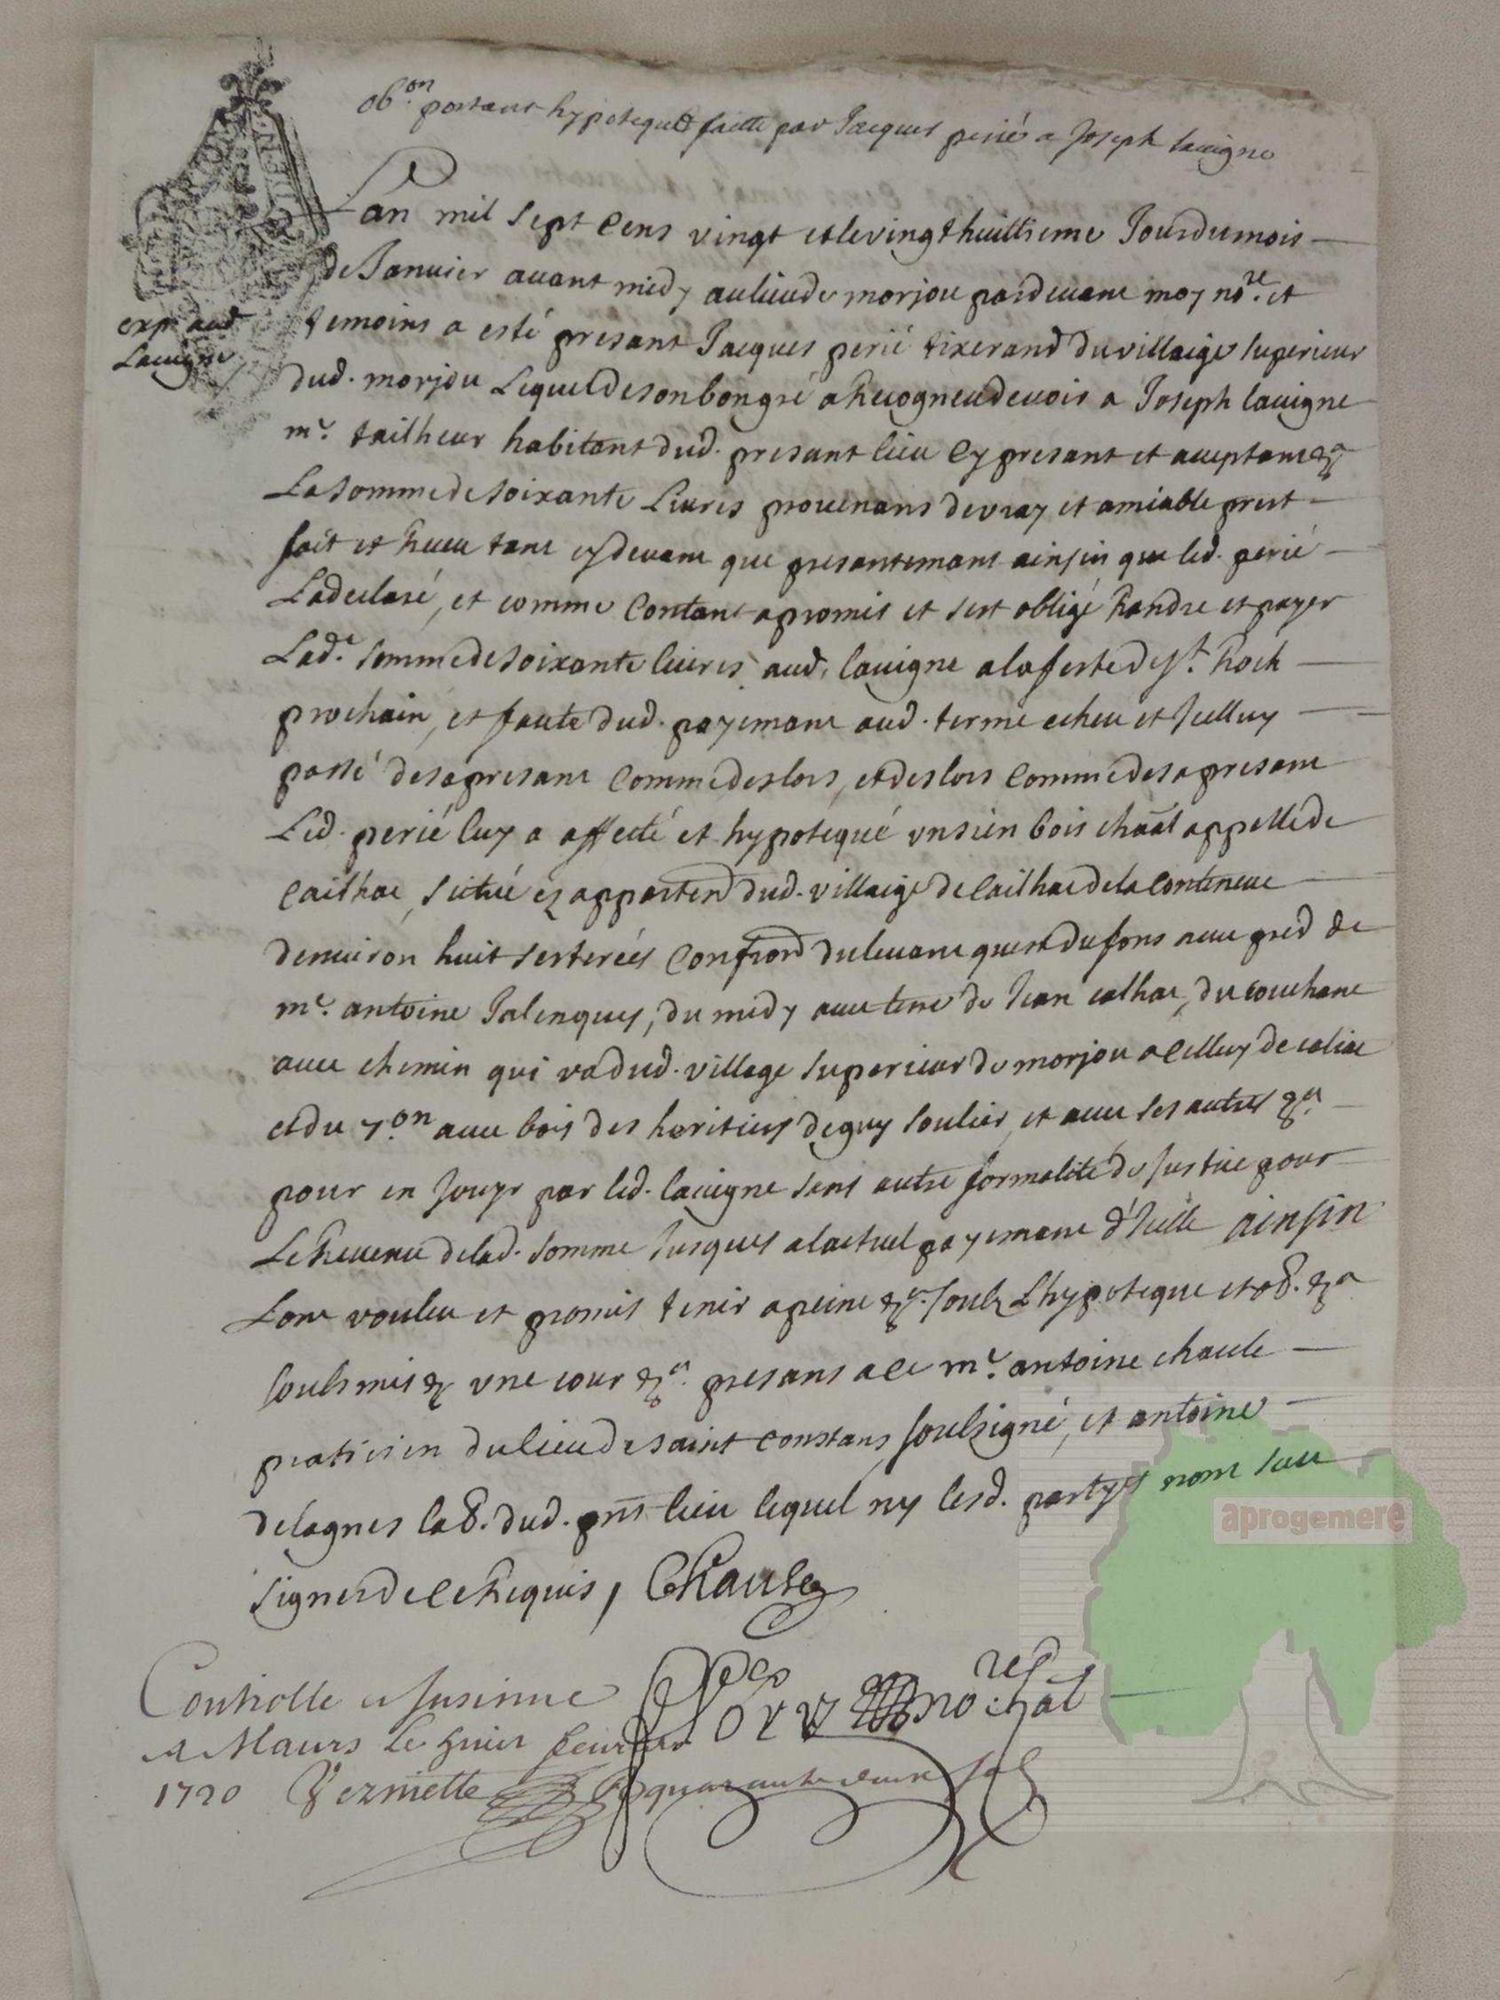 ob.on portant hypoteque faitte par Jacques perié a Joseph lavigne
Lan mil sept Cens vingt et le vingt huittieme Jour du mois
de Janvier avant midy au lieu de morjou pardevant moy no.re et
temoins a esté presant Jacques perié tixerand du villaige superieur
exp. aud.
Lavigne
dud. morjou Lequel de son bon gré a Recogneu devoir a Joseph lavigne
m.e tailheur habitant dud. presant lieu Cy presant et aceptant &a
La somme de soixante Livres provenans de vray et amiable prest
fait et Receu tant cy devant que presantemant ainsin que led. perié
La declaré, et comme Contant a promis et sest obligé Randre et payer
Lad.e somme de soixante livres aud. lavigne a la feste de st. Roch
prochain, et faute dud. payemant aud. terme echeu et Jcelluy
passé des a presant Comme des lors, et des lors Comme des a presant
Led. perié luy a affecté et hypotequé un sien bois chat appellé de
Cailhac, situé ez apparten dud. villaige de Cailhac de la Contenue
denviron huit sesterées Confron du levant quest du fons avec pred de
m.e antoine Jalenques, du midy avec terre de Jean calhac, du couchant
avec chemin qui va dud. village superieur de morjou a Celluy de caliac
et du 7.on avec bois des heritiers de guy soulier, et avec ses autres &a
pour en Jouyr par led. lavigne sans autre formalité de Justice pour
Le Revenu de lad. somme Jusques a lactuel payemant d'Jcelle ainsin
Lont voulu et promis tenir a peine &a. soubz Lhypoteque et ob. &a
soubsmis &a une cour &a. presans a Ce m.e antoine chaule
praticien du lieu de saint Constans soubsigné, et antoine
delagnes lab. dud. pnt lieu lequel ny lesd. partyes nont sceu
signer de Ce Requis, Chaule
Controlle et Jnsinué
A Maurs Le huit fevrier no.re Ral
1720 Vermette R quarante deux sols
aprogemere